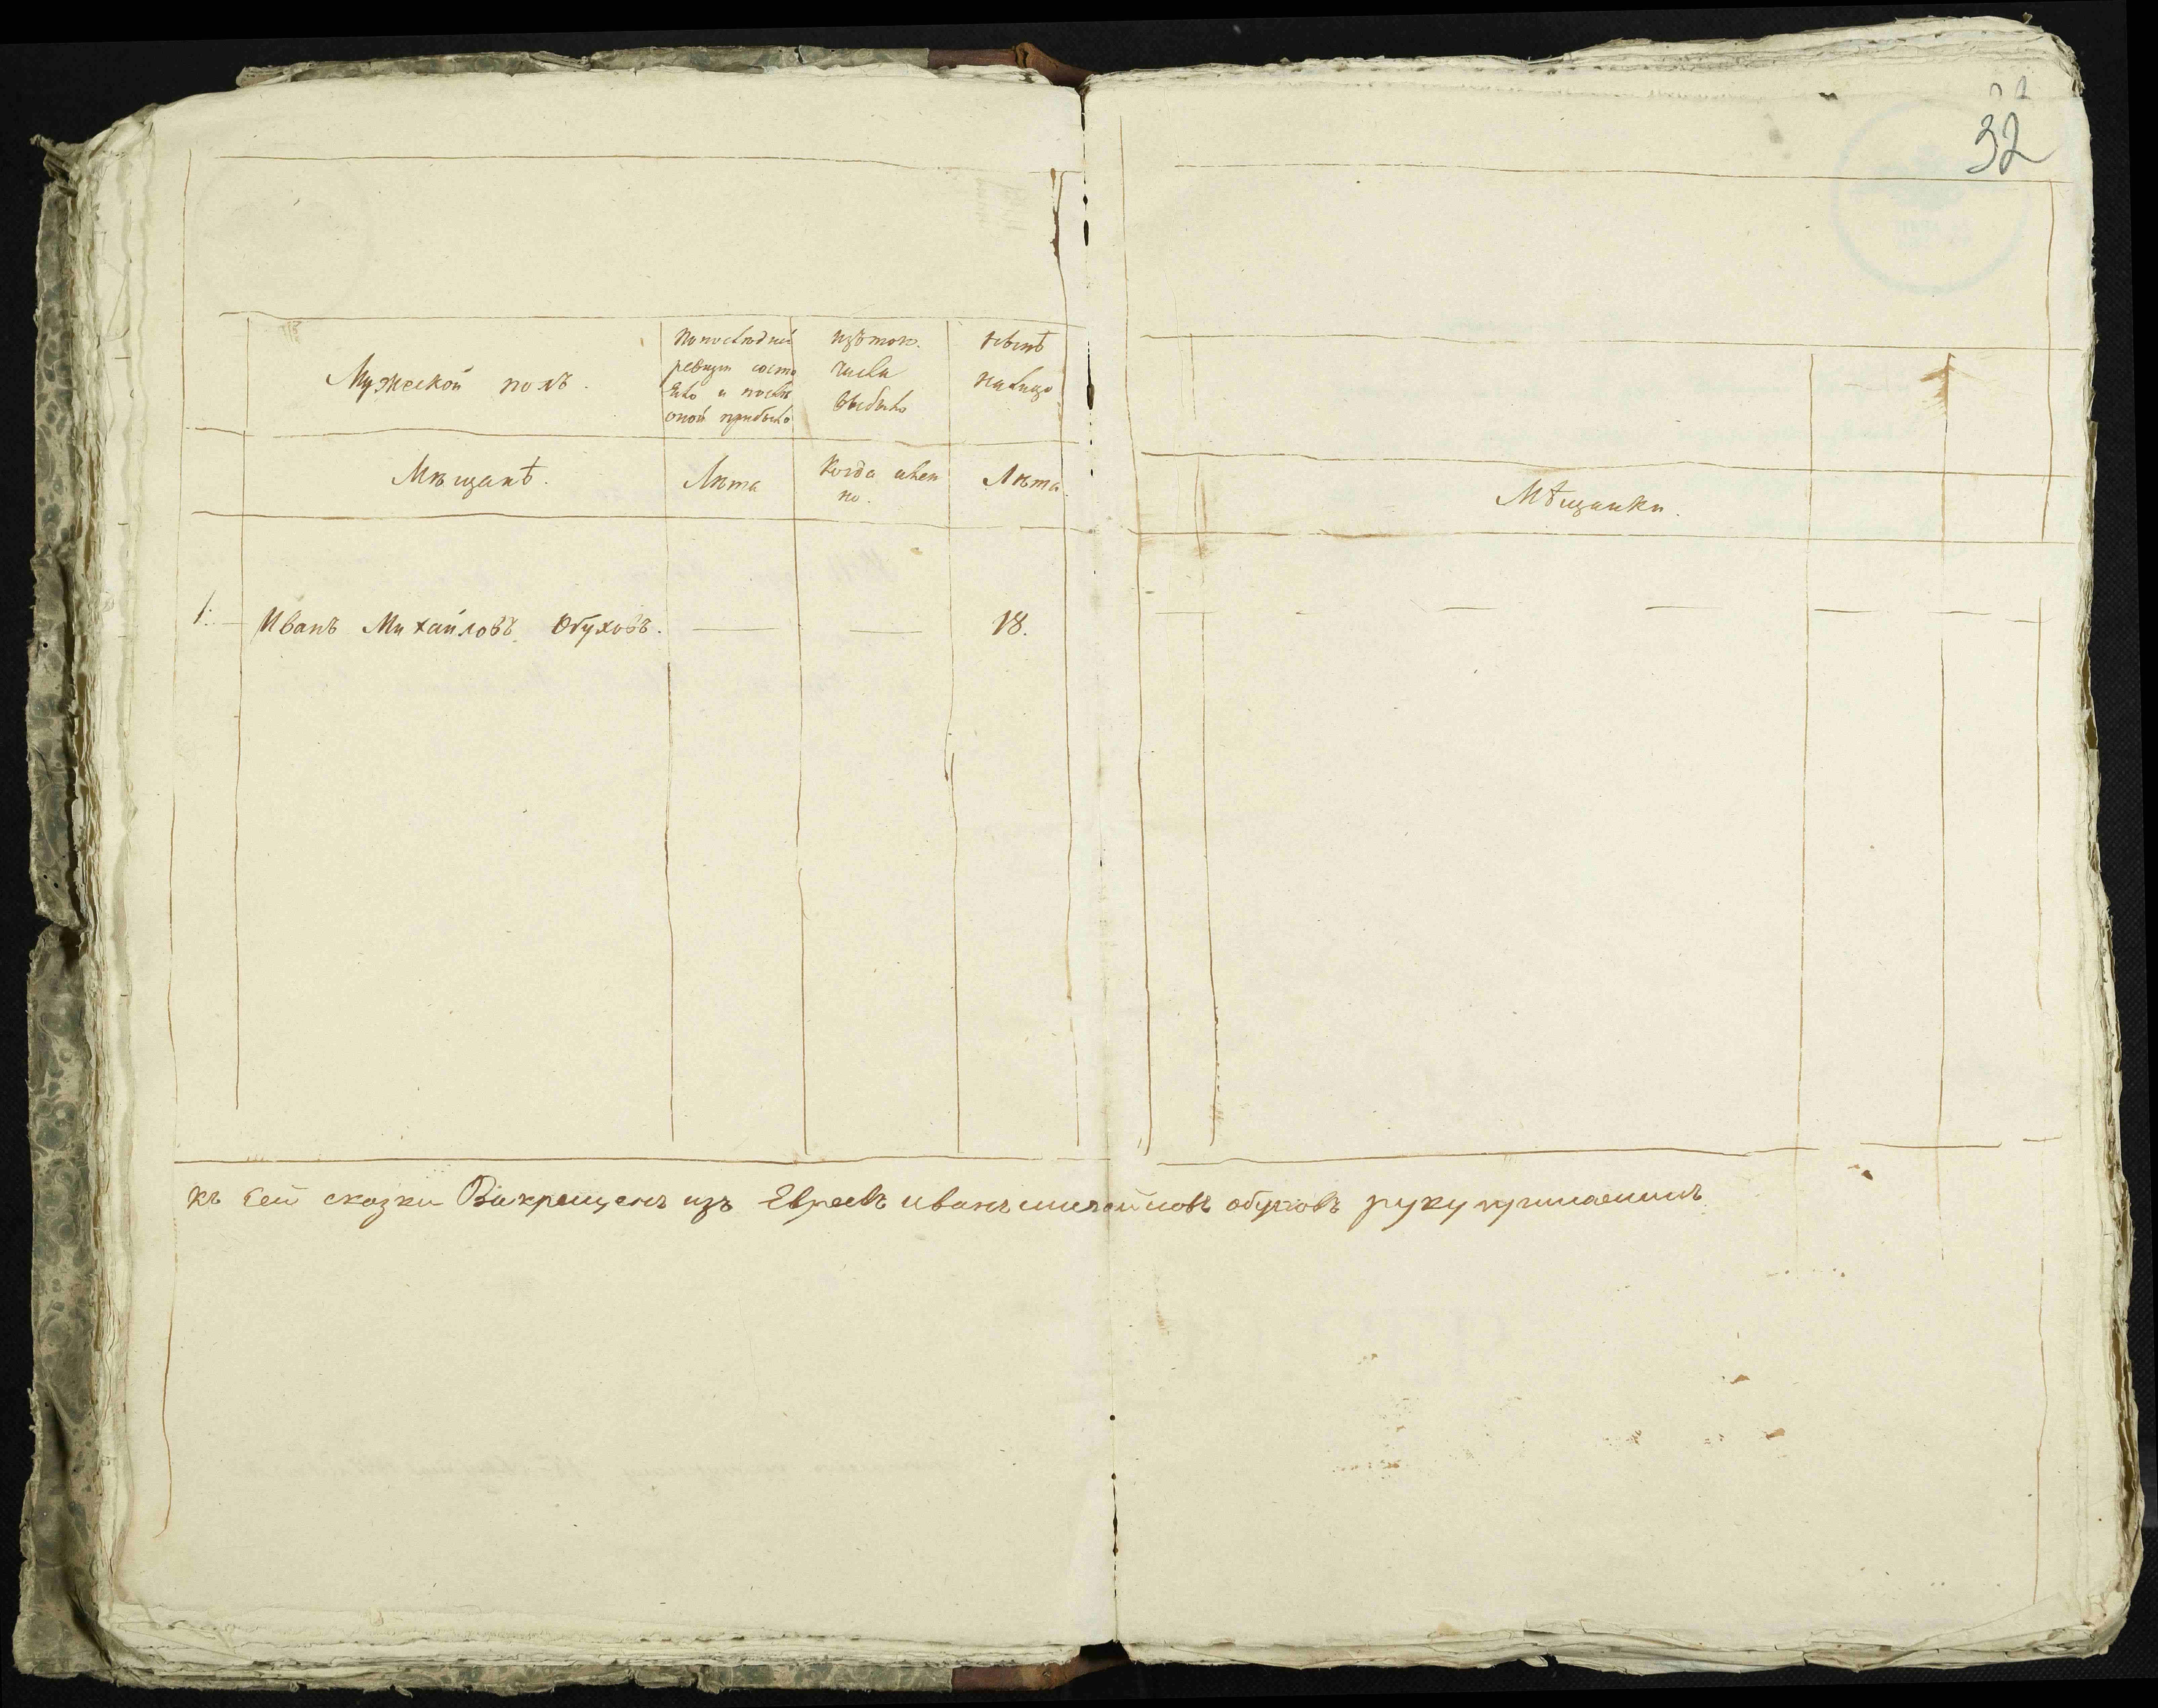 32
Мужеской полъ.
По последней
ревизи состо
яло и послѣ
оной прибыло
изътого.
числа
выбыло
нынѣ
налицо
Мѣщанѣ.
Лѣта
Когда имен
но.
Лѣта.
Мѣщанки.
1. Иванъ Михайловъ Обуховъ. — — 18.
къ сей сказки Выкрещенъ изъ Евреевъ иванъ михайловъ обуховъ руку